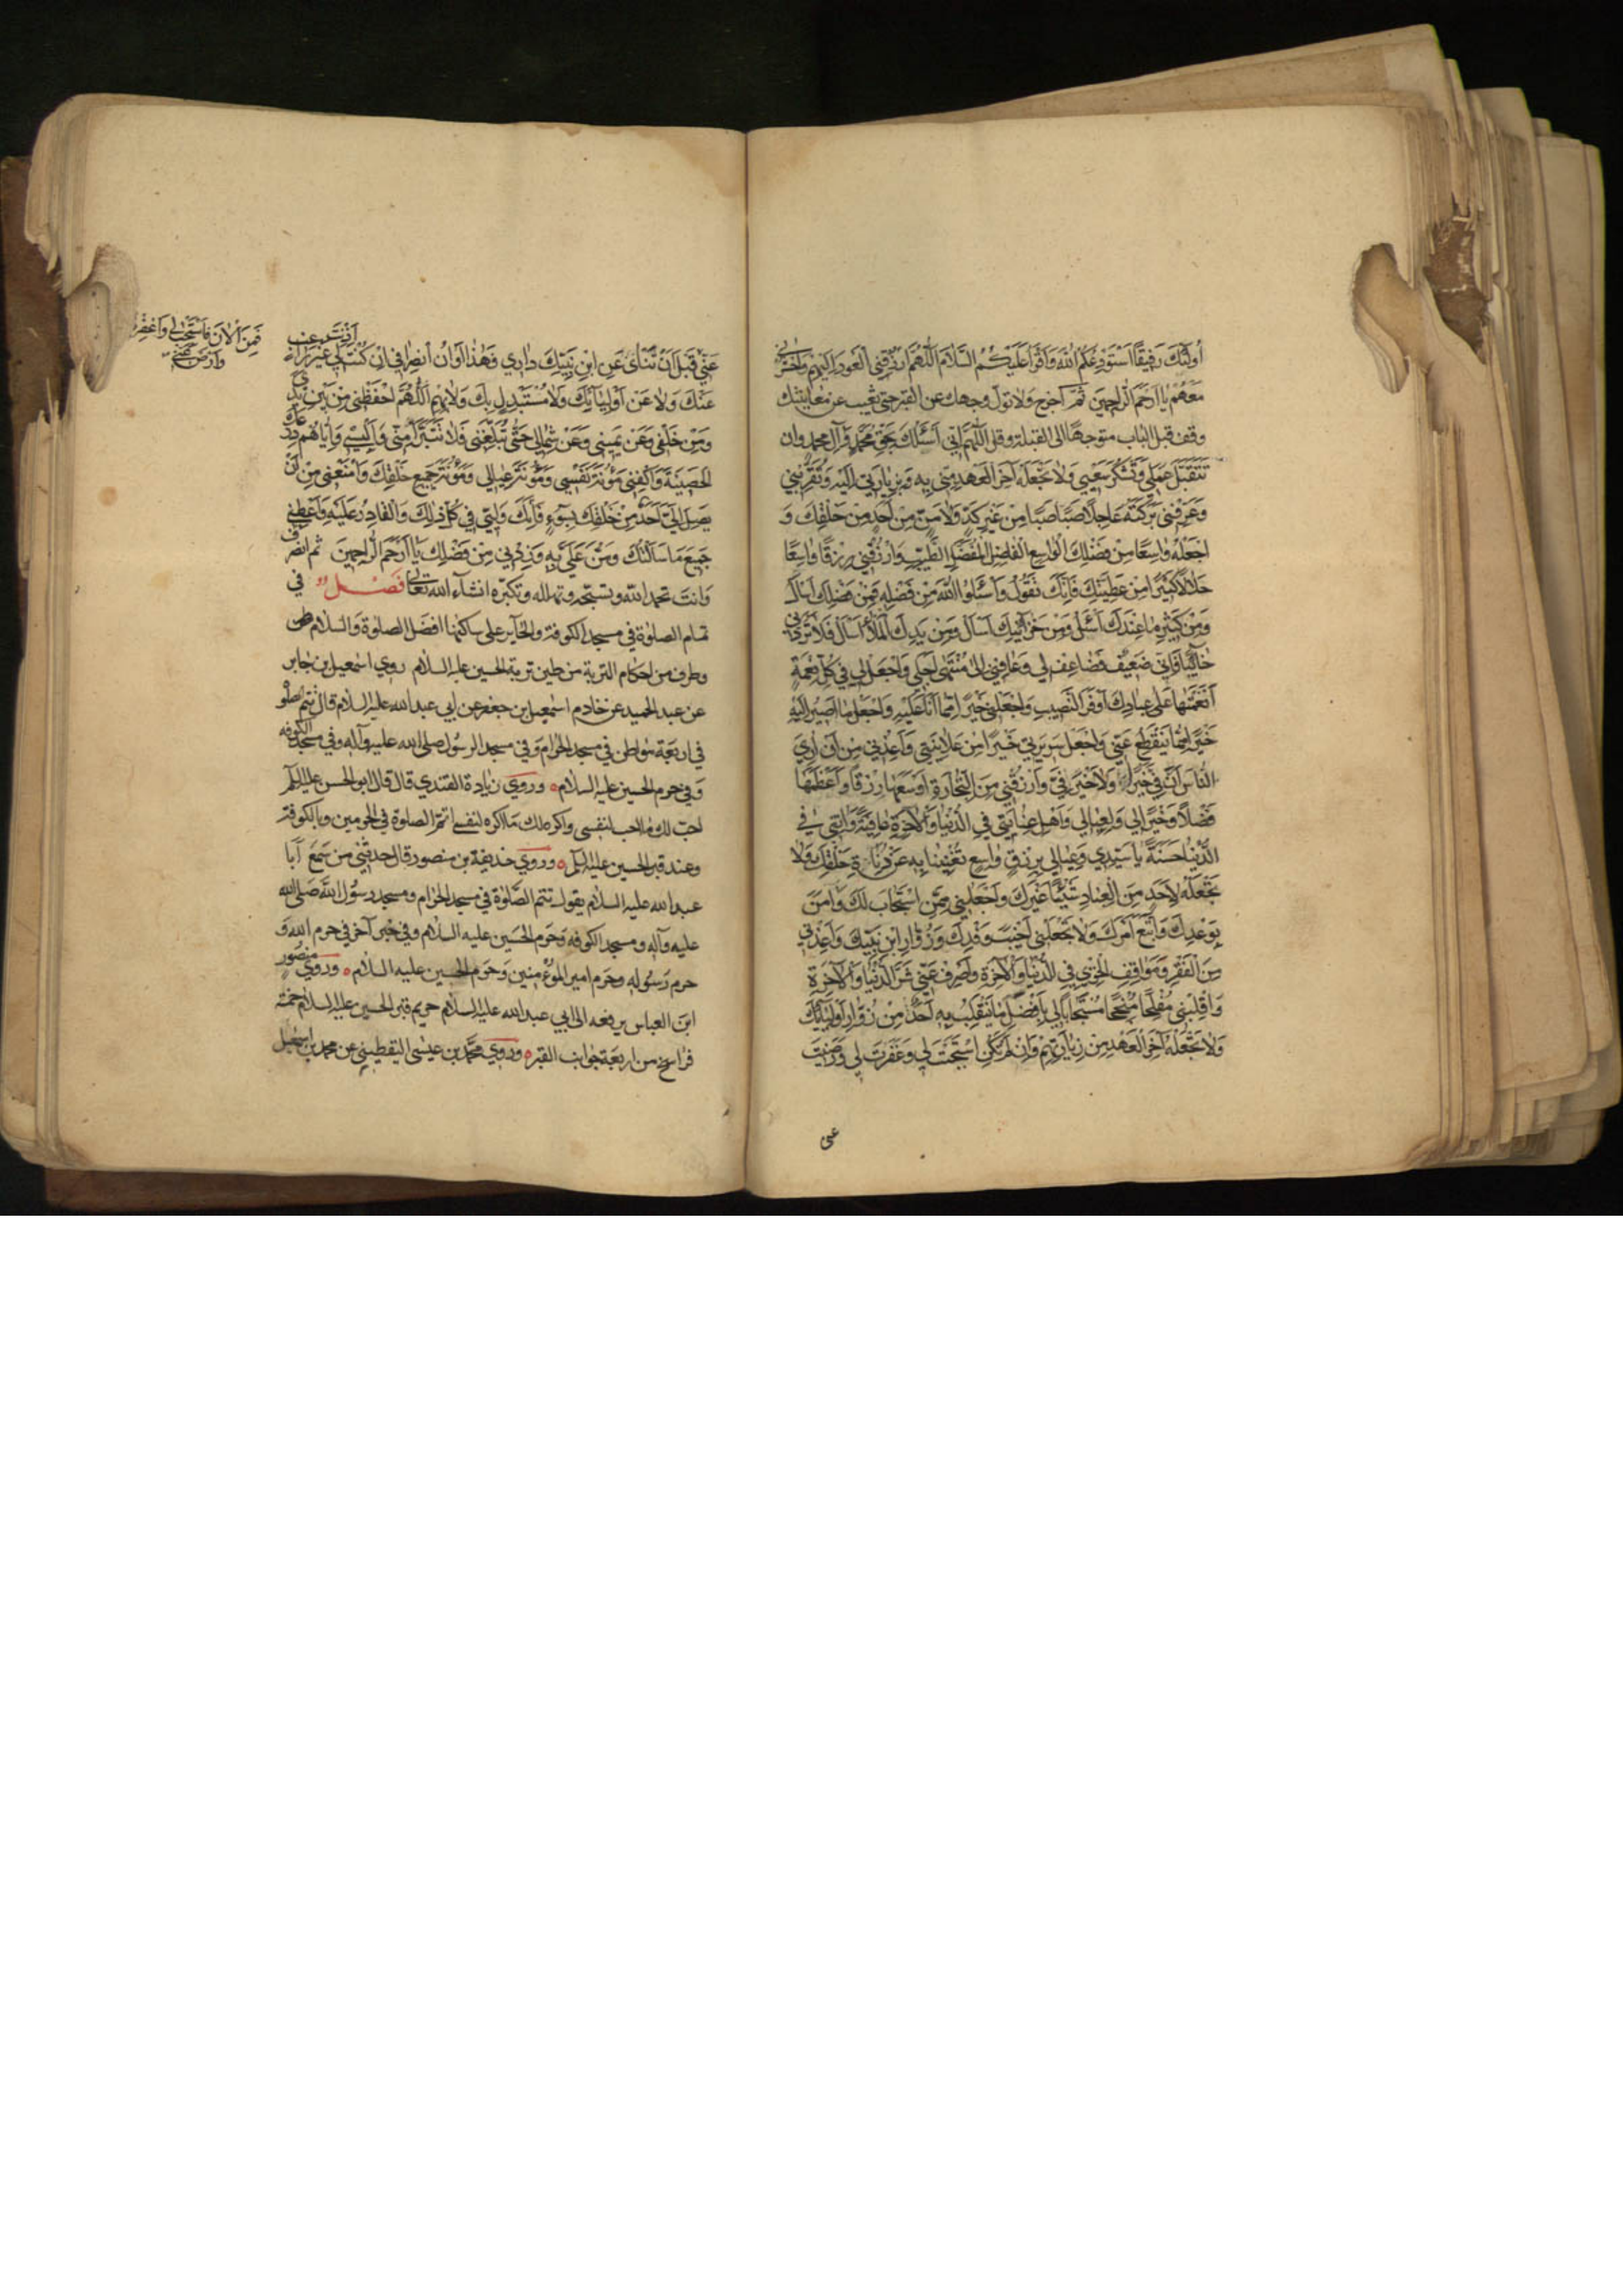 اُولٰئِكَ رَفيقًا اَسْتَوْدِعُكُمُ اللهَ وَاَقْرَأُ عَلَيْكُمُ السَّلامَ اَللّهُمَّ ارْزُقْنِي الْعَوْدَ اِلَيْهِمْ وَاحْشُرْني
مَعَهُمْ يا اَرْحَمَ الرّاحِمينَ ثمّ اخرج ولا تولّ وجهك عن القبر حتى تغيب عن معاينتك
وقف قبل الباب متوجهًا الى القبلة وقل اَللّهُمَّ اِنّي اَسْئَلُكَ بِحَقِّ مُحَمَّدٍ وَآلِ مُحَمَّدٍ وان
تَتَقَبَّلَ عَمَلي وَتَشْكُرَ سَعْيي وَلا تَجْعَلَهُ آخِرَ الْعَهْدِ مِنّي بِهِ وَبِزِيارَتي اِلَيْهِ وَتُقَرِّبَني
وَعَرِّفْني بَرَكَتَهُ عاجِلاً صَبًّا صَبًّا مِنْ غَيْرِ كَدٍّ وَلا مَنٍّ مِنْ اَحَدٍ مِنْ خَلْقِكَ وَ
اجْعَلْهُ واسِعًا مِنْ فَضْلِكَ الْواسِعِ الْفاضِلِ الْمُفْضِلِ الطَّيِّبِ وَارْزُقْني رِزْقًا واسِعًا
حَلالاً كَثيرًا مِنْ عَطِيَّتِكَ فَاِنَّكَ تَقُولُ وَاسْئَلُوا اللهَ مِنْ فَضْلِهِ فَمِنْ فَضْلِكَ اَسْاَلُ
وَمِنْ كَثيرِ ما عِنْدَكَ اَسْئَلُ وَمِنْ خَزآئِنِكَ اَسْاَلُ وَمِنْ يَدِكَ الْمَلأى اَسْاَلُ فَلا تَرُدَّني
خآئِبًا فَاِنّي ضَعيفٌ فَضاعِفْ لي وَعافِني اِلى مُنْتَهى اَجَلي وَاجْعَلْ لي في كُلِّ نِعْمَةٍ
اَنْعَمْتَها عَلى عِبادِكَ اَوْفَرَ النَّصيبِ وَاجْعَلْني خَيْرًا مِمّا اَنَا عَلَيْهِ وَاجْعَلْ ما اَصيرُ اِلَيْهِ
خَيْرًا مِمّا يَنْقَطِعُ عَنّي وَاجْعَلْ سَريرَتي خَيْرًا مِنْ عَلانِيَتي وَاَعِذْني مِنْ اَنْ اُرِيَ
النّاسَ اَنَّ فِيَّ خَيْرًا وَلا خَيْرَ فِيَّ وَارْزُقْني مِنَ التِّجارَةِ اَوْسَعَها رِزْقًا وَاَعْظَمَها
فَضْلاً وَخَيْرًا لي وَلِعِيالي وَاَهْلِ عِنايَتي فِي الدُّنْيا وَالْاخِرَةِ عافِيَةً وَآتِني في
الدُّنْيا حَسَنَةً يا سَيِّدي وَعِيالي بِرِزْقٍ واسِعٍ تُغْنينا بِهِ عَنْ خَلْقِكَ وَلا
تَجْعَلْهُ لِاَحَدٍ مِنَ الْعِبادِ شَيْئًا غَيْرِكَ وَاجْعَلْني مِمَّنِ اسْتَجابَ لَكَ وَامَنَ
بِوَعْدِكَ وَاتَّبَعَ اَمْرَكَ وَلا تَجْعَلْني اَخْيَبَ وَفْدِكَ وَزُوّارِ ابْنِ نَبِيِّكَ وَاَعِذْني
مِنَ الْفَقْرِ وَمَواقِفِ الْخِزْيِ فِي الدُّنْيا وَالْاخِرَةِ وَاصْرِفْ عَنّي شَرَّ الدُّنْيا وَالْاخِرَةِ
وَاقْلِبْني مُفْلِحًا مُنْجِحًا مُسْتَجابًا لي بِاَفْضَلِ ما يَنْقَلِبُ بِهِ اَحَدٌ مِنْ زُوّارِ اَوْلِيآئِكَ
وَلا تَجْعَلْهُ آخِرَ الْعَهْدِ مِنْ زِيارَتِهِمْ وَاِنْ لَمْ تَكُنِ اسْتَجَبْتَ لي وَغَفَرْتَ لي وَرَضيتَ
عَنّي
فَمِنَ الْانَ فَاسْتَجِبْ لي وَاغْفِرْ
وَارْضَ عَنّي
عَنّي قَبْلَ اَنْ تَنْأى عَنِ ابْنِ نَبِيِّكَ داري وَهذا اَوانُ انْصِرافي اِنْ كُنْتَ اَذِنْتَ لي غَيْرَ راغِبٍ
عَنْكَ وَلا عَنْ اَوْلِيآئِكَ وَلا مُسْتَبْدِلٍ بِكَ وَلا بِهِمْ اَللّهُمَّ احْفَظْني مِنْ بَيْنِ يَدَيَّ
وَمِنْ خَلْفي وَعَنْ يَميني وَعَنْ شِمالي حَتّى تُبَلِّغَني فَلا تَتَبَرَّأْ مِنّي وَاَلْبِسْني وَاِيّاهُمْ دِرْعَكَ
الْحَصينَةَ وَاكْفِني مَؤُنَةَ نَفْسي وَمَؤُنَةَ عِيالي وَمَؤُنَةَ جَميعِ خَلْقِكَ وَامْنَعْني مِنْ اَنْ
يَصِلَ اِلَيَّ اَحَدٌ مِنْ خَلْقِكَ بِسُوءٍ فَاِنَّكَ وَلِيّي في كُلِّ ذلِكَ وَالْقادِرُ عَلَيْهِ وَاَعْطِني
جَميعَ ما سَاَلْتُكَ وَمُنَّ عَلَيَّ بِهِ وَزِدْني مِنْ فَضْلِكَ يا اَرْحَمَ الرّاحِمينَ ثم انصرف
وانت تحمد الله وتسبّحه وتهلله وتكبّره انشآء الله تعالى فصل في
تمام الصلوة في مسجد الكوفة والحآير على ساكنهما افضل الصلوة والسلام
وطرف من احكام التربة من طين تربة الحسين عليه السلام روى اسمعيل بن جابر
عن عبد الحميد عن خادم اسمعيل بن جعفر عن ابي عبد الله عليه السلام قال تتم الصلوة
في اربعة مواطن في مسجد الحرام وفي مسجد الرسول صلى الله عليه وآله وفي مسجد الكوفه
وفي حرم الحسين عليه السلام وروى زيادة القندي قال قال ابو الحسن عليه السلم
احبّ لك ما احب لنفسي واكره لك ما اكره لنفسي اتم الصلوة في الحرمين وبالكوفة
وعند قبر الحسين عليه السلم وروى حذيفة بن منصور قال حدثني من سمع ابا
عبد الله عليه السلام يقول تتم الصلوة في مسجد الحرام ومسجد رسول الله صلى الله
عليه وآله ومسجد الكوفه وحرم الحسين عليه السلام وفي خبر آخر في حرم الله و
حرم رسوله وحرم امير المؤمنين وحرم الحسين عليه السلام وروى منصور
ابن العباس يرفعه الى ابي عبد الله عليه السلام حريم قبر الحسين عليه السلام خمسة
فراسخ من اربعة جوانب القبر وروى محمد بن عيسى اليقطيني عن محمد بن اسمعيل